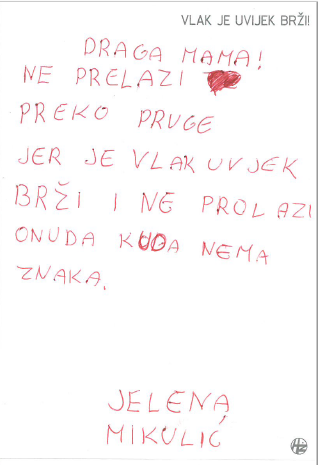 VLAK JE UVIJEK BRŽI!
DRAGA MAMA!
NE PRELAZI
PREKO PRUGE
JER JE VLAK UVJEK
BRŽI I NE PROLAZI
ONUDA KUDA NEMA
ZNAKA.
JELENA
MIKULIĆ
HŽ